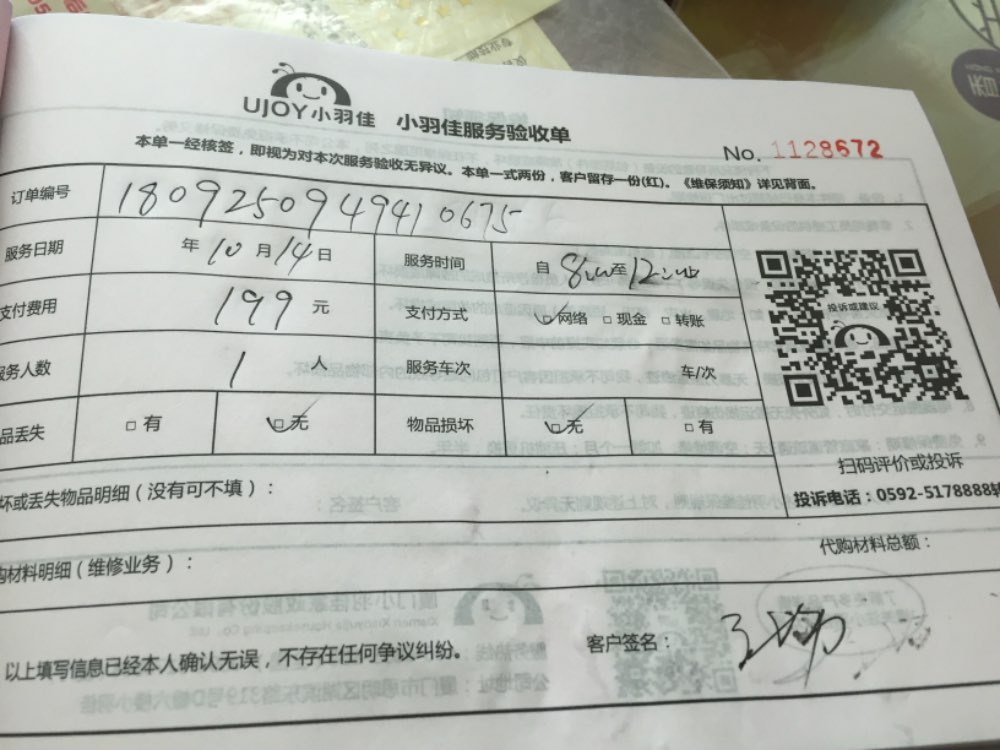 UJOY小羽佳 小羽佳服务验收单
No. 1128672
本单一经核签，即视为对本次服务验收无异议。本单一式两份，客户留存一份(红)。《维保须知》详见背面。
订单编号 1809250949410675
服务日期 年10月14日 服务时间 自8:00至12:00
支付费用 199 元 支付方式 网络 □现金 □转账
服务人数 1 人 服务车次 车/次
品丢失 □有 无 物品损坏 无 □有
投诉或建议
扫码评价或投诉
投诉电话：0592-5178888转
坏或丢失物品明细（没有可不填）：
购材料明细（维修业务）： 代购材料总额：
以上填写信息已经本人确认无误，不存在任何争议纠纷。 客户签名：